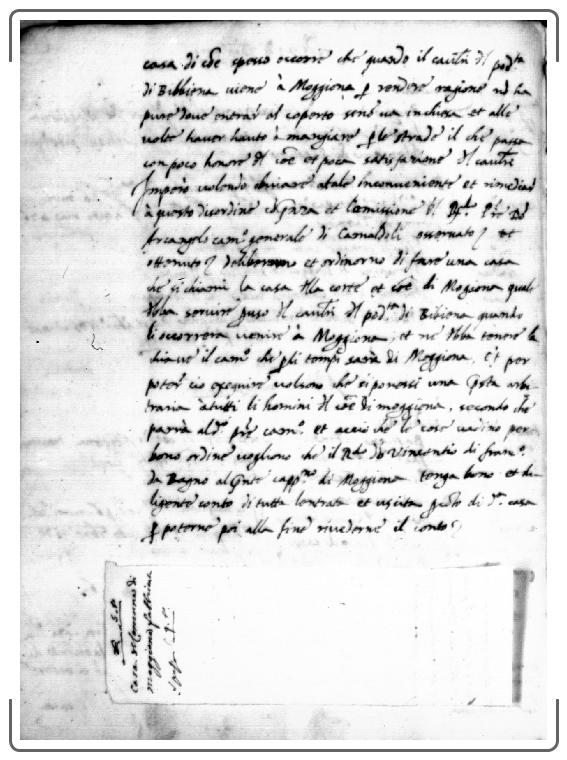 casa di cõe spesso occorre che quando il cavall.
di Bibbiena viene à Moggiona ꝑ rendere ragione nõ ha
pure dove entrar al coperto sino va in chiesa et alle
volte haver hauto à mangiare ꝑ le strade il che passa
con poco honore d̃l cõe et poca satisfatione d̃l
Imperò volendo obviare à tale Inconveniente et rimediar
à questo disordine et Comissione d̃l
Arcangelo cam.º generale di Camaldoli
ottenuto deliberorno et ordinorno di fare una casa
che si chiami la casa d̃lla corte et cõe di Mogiona quale
d̃bba servire d̃l d̃l pod.ta di Bibiena quando
li occorrerà venire à Moggiona, et ne d̃bba tenere la
chiave il cam.º che ꝑ li tempi sarà di Moggiona, et per
poter ciò exequire volsono che si ponessi una arbi-
traria à tutti li homini d̃l cõe di moggiona, secondo che
parrà al d.º pr̃e cam.º et acciò che le cose vadino per
bono ordine vogliono che il R.do dõ Vincentio di
da Bagno al pñte di Moggiona tenga bono et di-
ligente conto di tutta lentrata et uscita di d.ª casa
ꝑ poterne poi alla fine rivederne il conto
Casa del Comune di
Moggiona fabbrica